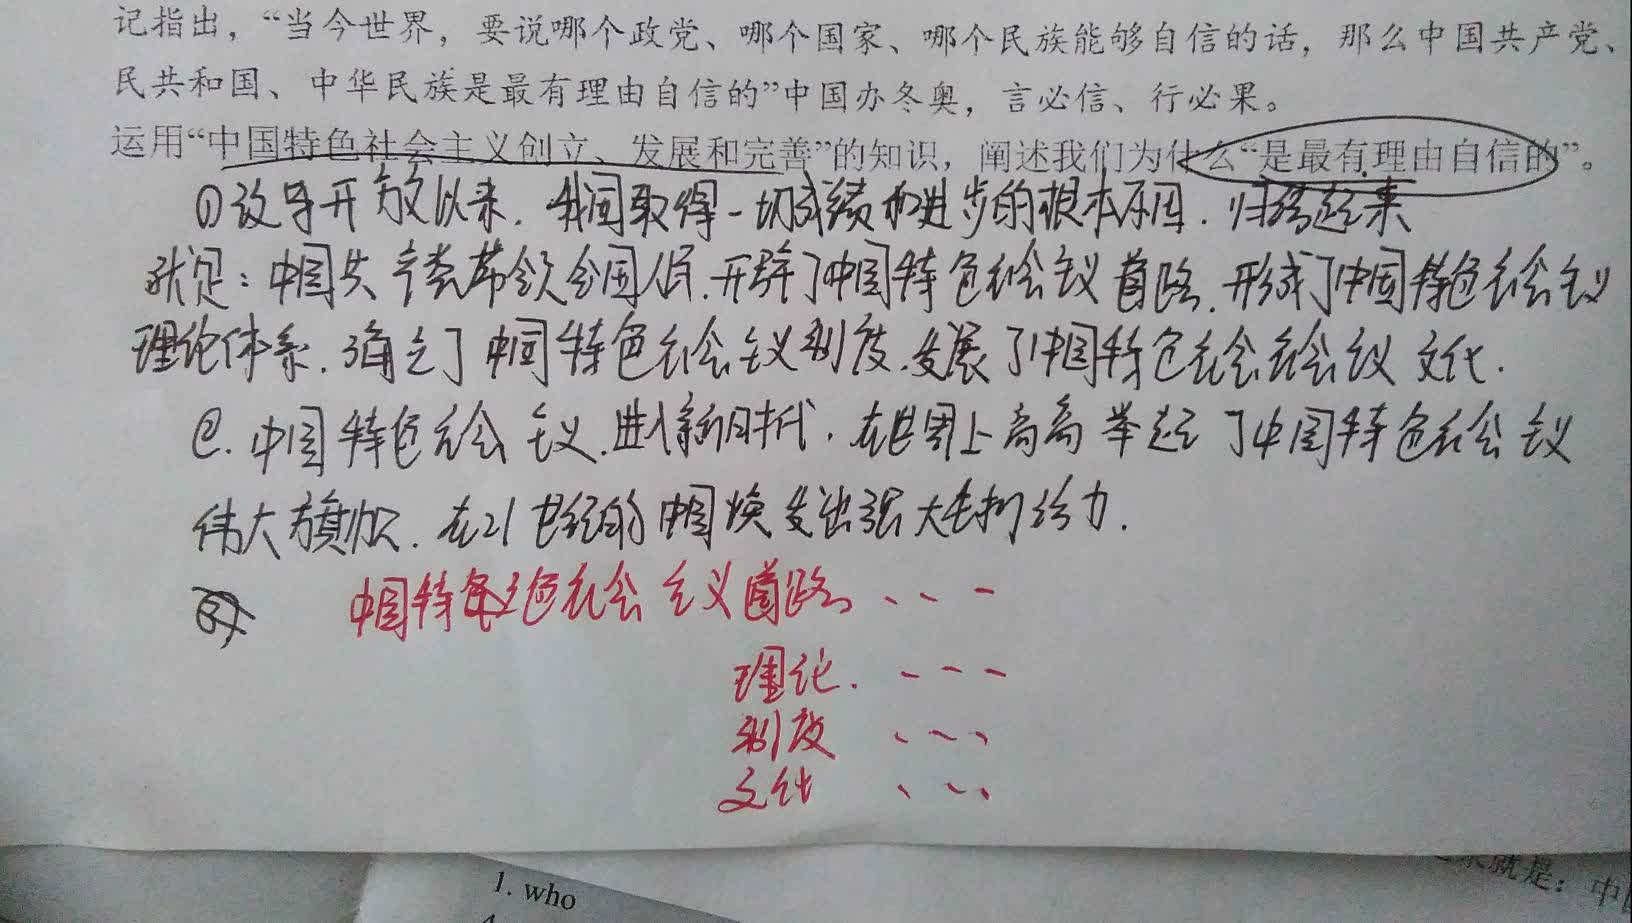 记指出，“当今世界，要说哪个政党、哪个国家、哪个民族能够自信的话，那么中国共产党、
民共和国、中华民族是最有理由自信的”中国办冬奥，言必信、行必果。
运用“中国特色社会主义创立、发展和完善”的知识，阐述我们为什么“是最有理由自信的”。
①改革开放以来.我国取得一切成绩和进步的根本原因.归结起来
就是:中国共产党带领全国人民.开辟了中国特色社会主义道路.形成了中国特色社会主义
理论体系.确立了中国特色社会主义制度.发展了中国特色社会社会主义文化.
②.中国特色社会主义.进入新时代.在世界上高高举起了中国特色社会主义
伟大旗帜.在21世纪的中国焕发出强大生机活力.
中国特色社会主义道路、、、-
理论.---
制度、、、
文化、、、
1. who
来就是：中国